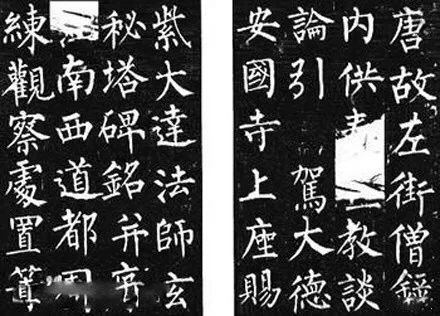 唐故左街僧錄
内供教談
論引 駕大德
安國寺上座賜
紫大達法師玄
秘塔碑銘并序
南西道都團
練觀察處置等